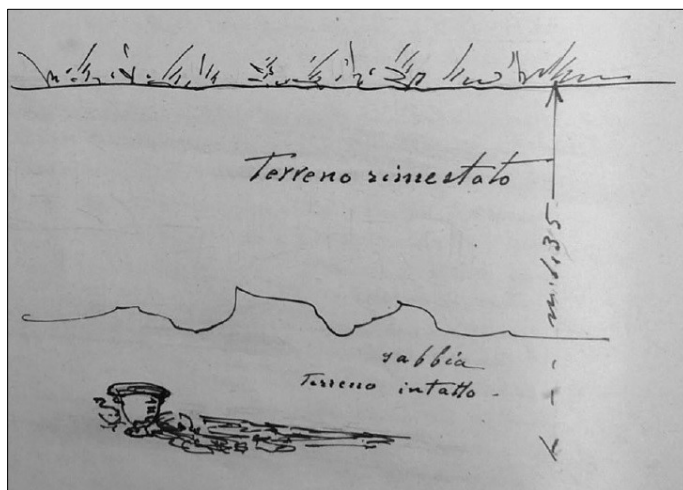 Terreno rimestato
m. 1,35
sabbia
Terreno intatto -